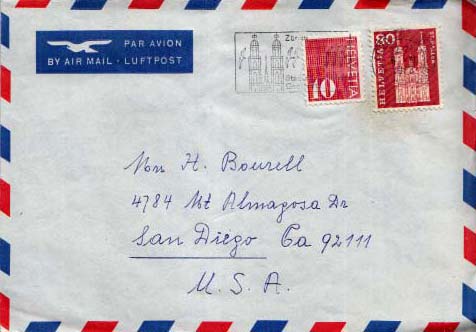 PAR AVION
BY AIR MAIL · LUFTPOST
Zürich
10
HELVETIA
80
HELVETIA
H. Bourell
4784 Mt Almagosa Dr
San Diego Ca 92111
U. S. A.